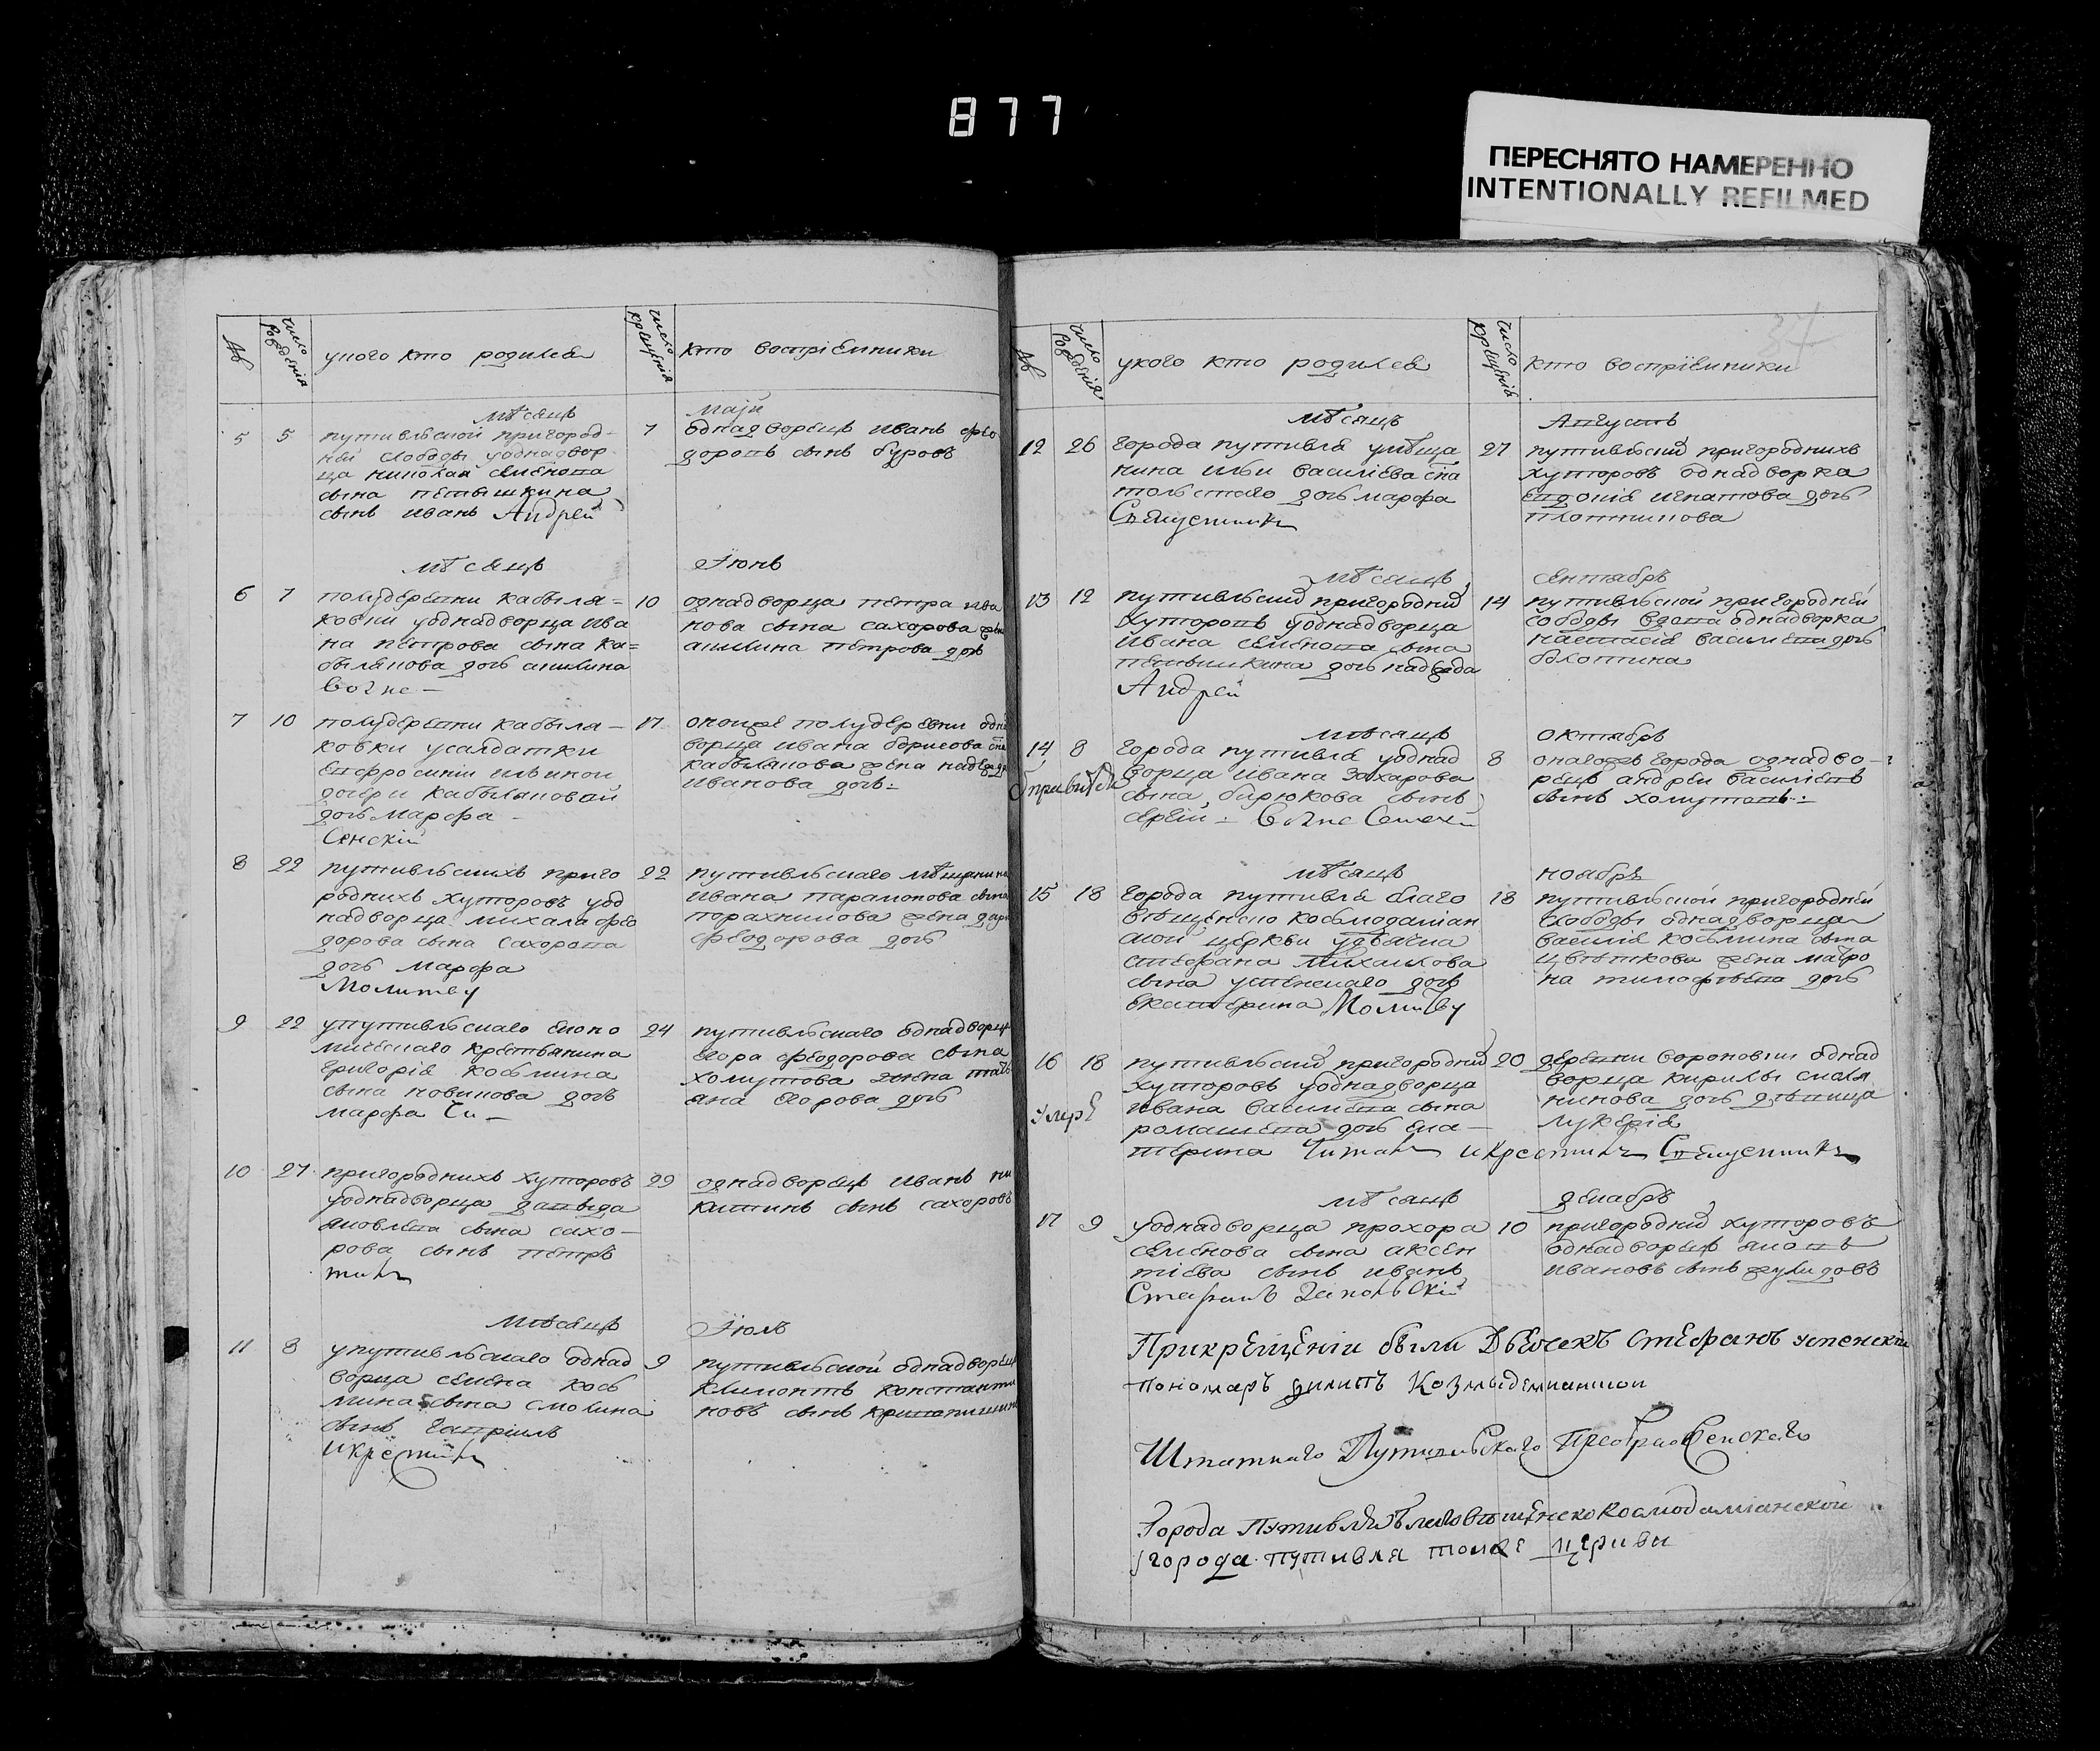 877
ПЕРЕСНЯТО НАМЕРЕННО
INTENTIONALLY REFILMED
№
число рождения
укого кто родился
число крещения
кто воспрiемники
мѣсяцъ
маiи
5
5
путивльской пригород-
ней слободы уоднадвор
ца николая семенова
сына петышкина
сынъ иванъ Андрей
7
однадворецъ иванъ фео
доровъ сынъ буровъ
мѣсяцъ
Iюнь
6
7
полудеревни кабыля=
ковки уоднадворца ива
на петрова сына ка=
былякова дочь акилина
10
однадворца петра ива
нова сына сахорова жена
акилина петрова дочь
7
10
полудеревни кабыля-
ковки усалдатки
евфросинiи ильиной
дочери кабыляковой
дочь марфа
Сенскiй
17
оноиже полудеревни одна
ворца ивана борисова сна
кабылякова жена надежда
иванова дочь
8
22
путивльскихъ приго
родныхъ хуторовъ уод
надворца михаила фео
дорова сына сахорова
дочь марфа
Молитву
22
путивльскаго мѣщанина
ивана парамонова сына
порахникова жена дарья
феодорова дочь
9
22
упутивльскаго еконо
мическаго крестьянина
григорiя космина
сына новикова дочь
марфа
24
путивльскаго однадворца
егора феодорова сына
холутова жена татi
яна егорова дочь
10
27
пригородныхъ хуторовъ
уоднадворца давыда
яковлева сына сахо-
рова сынъ петръ
29
однадворецъ иванъ ни
китинъ сынъ сахоровъ
мѣсяцъ
Iюль
11
8
упутивльскаго однад
ворца семена кось
мина сына смокина
сынъ гаврiилъ
икрестилъ
9
путивльской однадворецъ
климонтъ константи
новъ сынъ
№
число рождения
укого кто родился
число крещения
кто воспрiемники
мѣсяцъ
Августъ
12
26
города путивля умѣща
нина ильи василiева сна
толъстаго дочь марфа
Священникъ
27
путивльскихъ пригородныхъ
хуторовъ однадворка
евдокiя игнатова дочь
плотникова
мѣсяцъ
сентябрь
13
12
путивльских пригородних
хуторовъ уоднадворца
ивана семенова сына
петышкина дочь надежда
Андрей
14
путивльской пригородней
слободы вдова однадворка
настасiя василiева дочь
болотина
мѣсяцъ
октябрь
14
8
города путивля уоднад
ворца ивана захарова
сына бирюкова сынъ
сергей
8
оногожъ города однадво-
рецъ андреи василiевъ
сынъ холутовъ
мѣсяцъ
ноябрь
15
18
города путивля благо
вѣщенско косьмодамiан
ской церкви удьячка
стефана михаилова
сына успенскаго дочь
екатерина Молитву
18
путивльской пригородней
слободы однадворца
василiя косьмина сына
цветкова жена матро
на тимофѣева дочь
16
18
Умре
путивльских пригородних
хуторовъ уоднадворца
ивана василiева сына
ромашева дочь ека-
терина Читалъ икрестилъ Священникъ
20
деревни вороновки однад
ворца кирилы
дочь дѣвица
лукерiя
мѣсяцъ
декабрь
17
9
уоднадворца прохора
семенова сына аксен
тiева сынъ иванъ
10
пригородних хуторовъ
однадворецъ яковъ
ивановъ сынъ
Прикрещенiи были Дьечекъ Стефанъ успенскiи
пономаръ филипъ
Штатнаго Путивльскаго Преображенскаго
Города Путивля Благовѣщенско Космодамiанской
города путивля тояже церкви